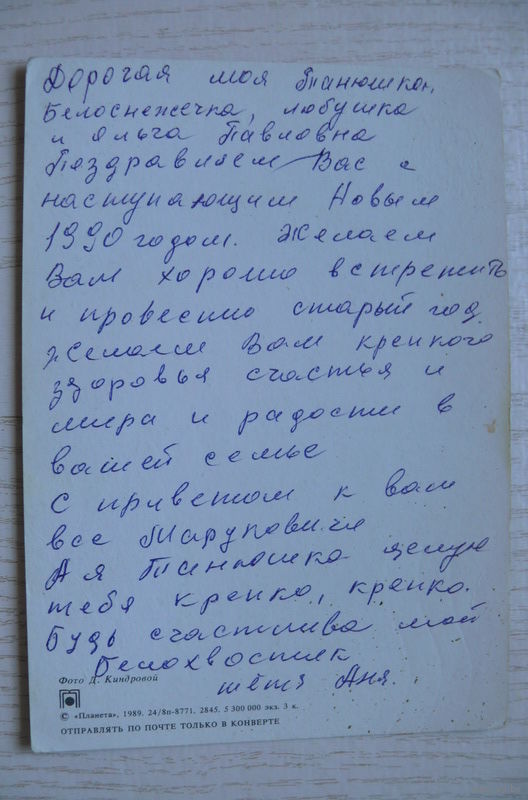 Дорогая моя Танюшка,
Белоснежечка, любушка
и Ольга Павловна
Поздравляем Вас с
наступающим Новым
1990 годом. Желаем
Вам хорошо встретить
и провесто старый год
Желаем Вам крепкого
здоровья счастья и
мира и радости в
вашей семье
С приветом к вам
все
А я Танюшка целую
тебя крепко, крепко.
Будь счастлива мой
Белохвостик
тётя Аня.
Фото Д. Киндровой
© «Планета», 1989. 24/8п-8771. 2845. 5 300 000 экз. 3 к.
ОТПРАВЛЯТЬ ПО ПОЧТЕ ТОЛЬКО В КОНВЕРТЕ